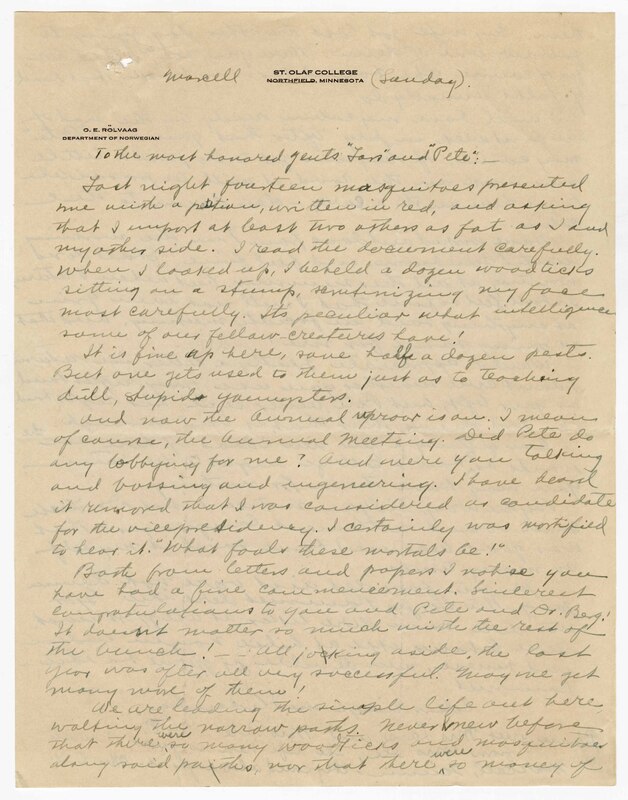 ST. OLAF COLLEGE
Marcell NORTHFIELD, MINNESOTA (Sunday).
O. E. RÖLVAAG
DEPARTMENT OF NORWEGIAN
To the most honored gents "Lars" and "Pete":—
Last night, fourteen mosquitoes presented
me with a petion, written in red, and asking
that I import at least two others as fat as I and
my other side. I read the document carefully.
When I looked up, I beheld a dozen woodticks
sitting on a stump, scrutinizing my face
most carefully. Its peculiar what intelligence
some of our fellow-creatures have!
It is fine up here, save half a dozen pests.
But one gets used to them just as to teaching
dull, stupid youngsters.
And now the annual uproar is on. I mean
of course, the Annual Meeting. Did Pete do
any lobbying for me? And were you talking
and bossing and ingeneering. I have heard
it rumored that I was considered as candidate
for the vicepresidency. I certainly was mortified
to hear it. "What fools these mortals be!"
Both from letters and papers I notise you
have had a fine commencement. Sincerest
congratulations to you and Pete and Dr. Berg!
It doesn't matter so much with the rest of
the bunch! — All joking aside, the last
year was after all very successful. May we get
many more of them!
We are leading the simple life out here
walking the narrow paths. Never knew before
that there were so many woodticks and mosquitoes
along said paths, nor that there were so many of